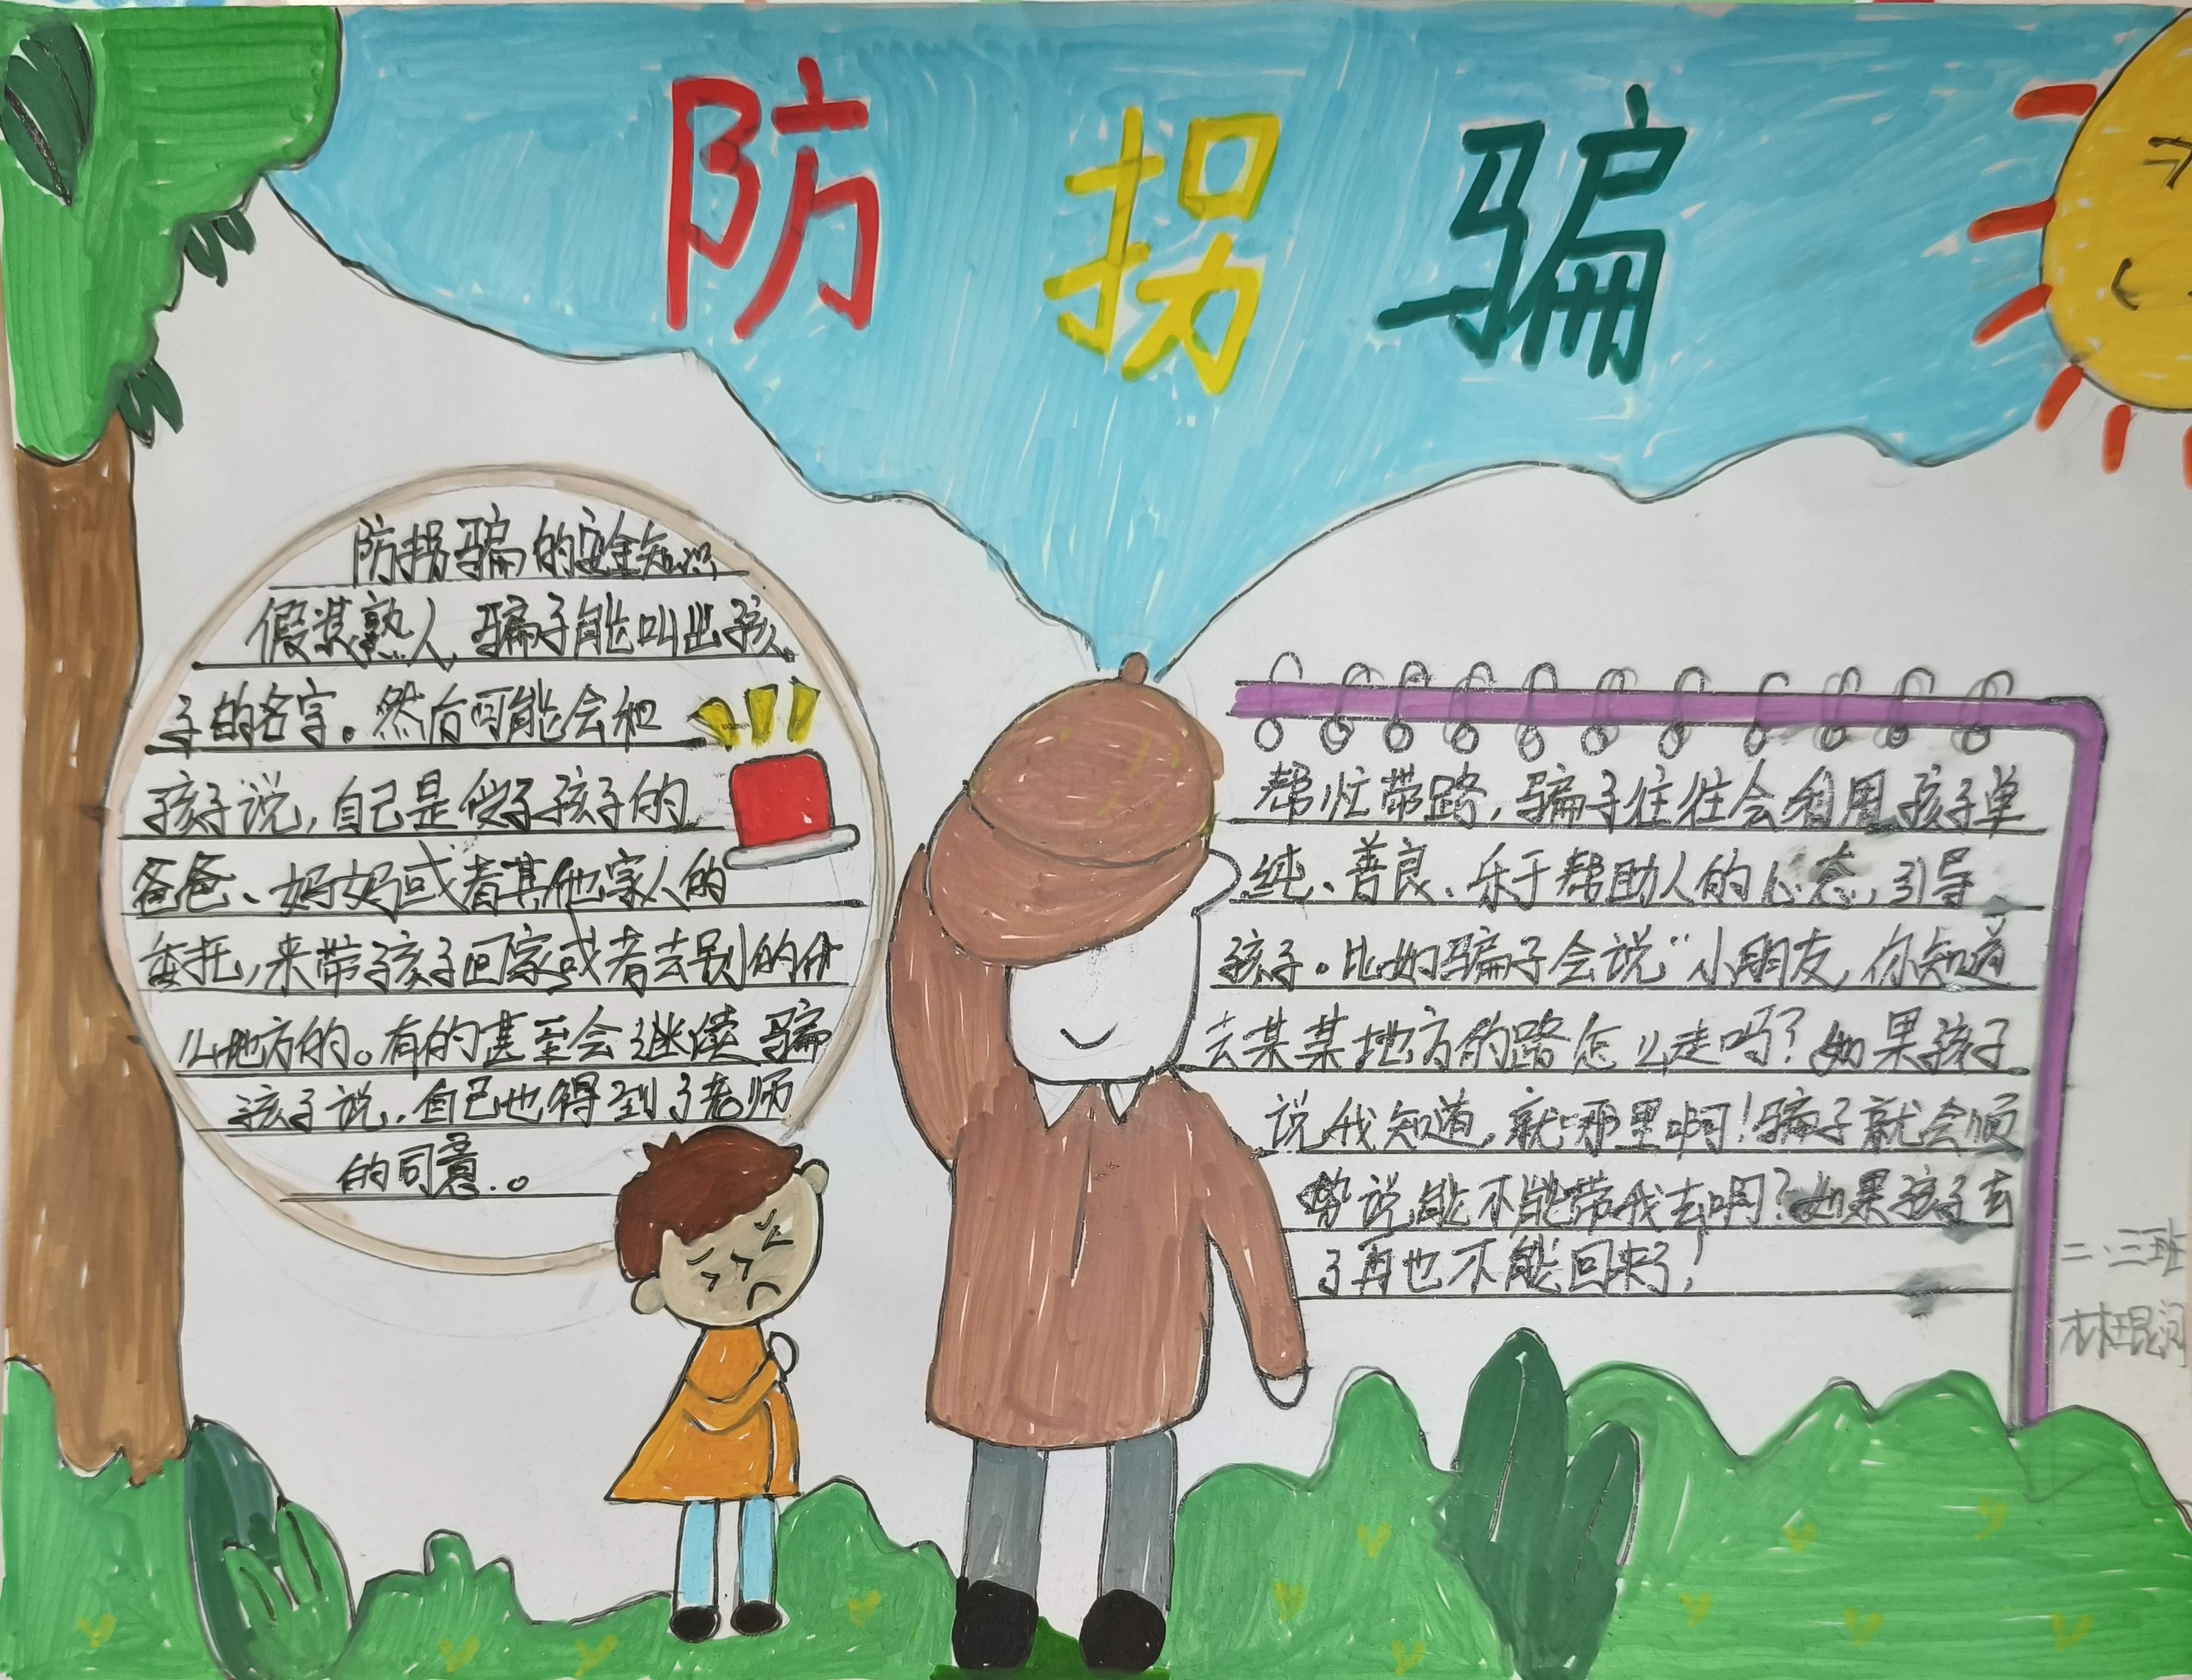 防拐骗
防拐骗的安全知识
假装熟人，骗子能叫出孩
子的名字。然后可能会和
孩子说，自己是受了孩子的
爸爸、妈妈或者其他家人的
委托，来带孩子回家或者去别的什
么地方的。有的甚至会继续骗
孩子说，自己也得到了老师
的同意。
帮忙带路，骗子往往会利用孩子单
纯、善良、乐于帮助人的心态，引导
孩子。比如骗子会说“小朋友，你知道
去某某地方的路怎么走吗？如果孩子
说我知道，就哪里啊！骗子就会顺
势说能不能带我去啊？如果孩子去
了再也不能回来了！
二、三班